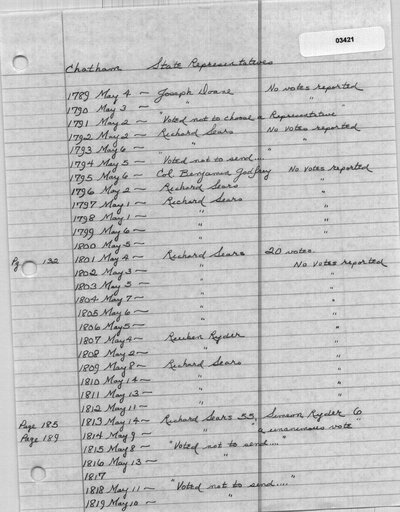 03421
Chatham State Representatives
1789 May 4 — Joseph Doane No votes reported
1790 May 3 — " "
1791 May 2 — "Voted not to choose a Representative"
1792 May 2 — Richard Sears No votes reported
1793 May 6 — " "
1794 May 5 — "Voted not to send...."
1795 May 6 — Col. Benjamin Godfrey No votes reported
1796 May 2 — Richard Sears "
1797 May 1 — Richard Sears "
1798 May 1 — " "
1799 May 6 — " "
1800 May 5 — " "
Pg 132 1801 May 4 — Richard Sears 20 votes.
1802 May 3 — " No votes reported
1803 May 5 — " "
1804 May 7 — " "
1805 May 6 — " "
1806 May 5 — " "
1807 May 4 — Reuben Ryder "
1808 May 2 — " "
1809 May 8 — Richard Sears "
1810 May 14 — " "
1811 May 13 — " "
1812 May 11 — " "
Page 185 1813 May 14 — Richard Sears 55, Simeon Ryder 6
Page 189 1814 May 9 — " "a unanimous vote"
1815 May 8 — "Voted not to send...."
1816 May 13 — "
1817
1818 May 11 — "Voted not to send...."
1819 May 10 — "